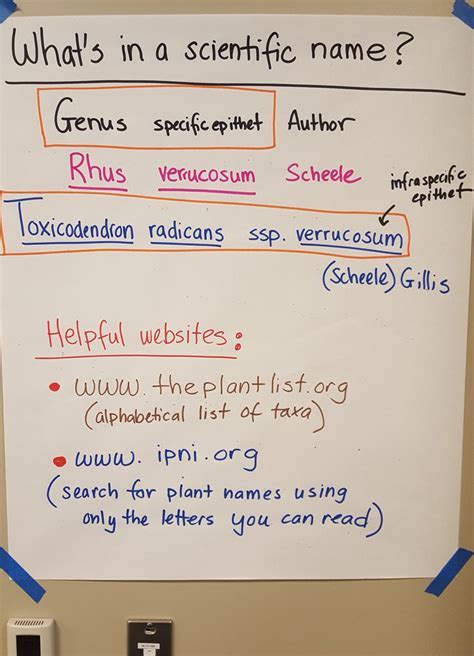 What's in a scientific name?
Genus specific epithet Author
Rhus verrucosum Scheele
infraspecific
epithet
Toxicodendron radicans ssp. verrucosum
(Scheele) Gillis
Helpful websites:
• www.theplantlist.org
(alphabetical list of taxa)
• www.ipni.org
(search for plant names using
only the letters you can read)